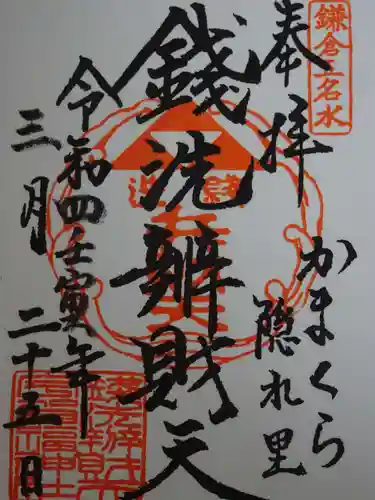 鎌倉五名水
奉拝
かまくら
隠れ里
銭洗辨財天
令和四壬寅年
三月二十五日